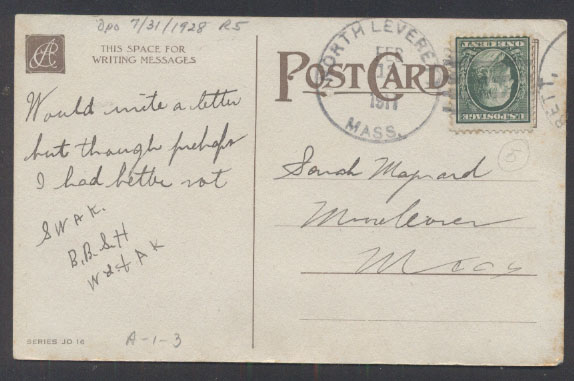 Dpo 7/31/1928 R5
THIS SPACE FOR
WRITING MESSAGES
POST CARD
NORTH LEVERE
FEB
1911
MASS.
ONE CENT
U.S. POSTAGE
Would write a letter
but though prehaps
I had better not
S W A K.
B.B.S.H
W St A K
Sarah Maynard
Mass
SERIES JD 16
A-1-3